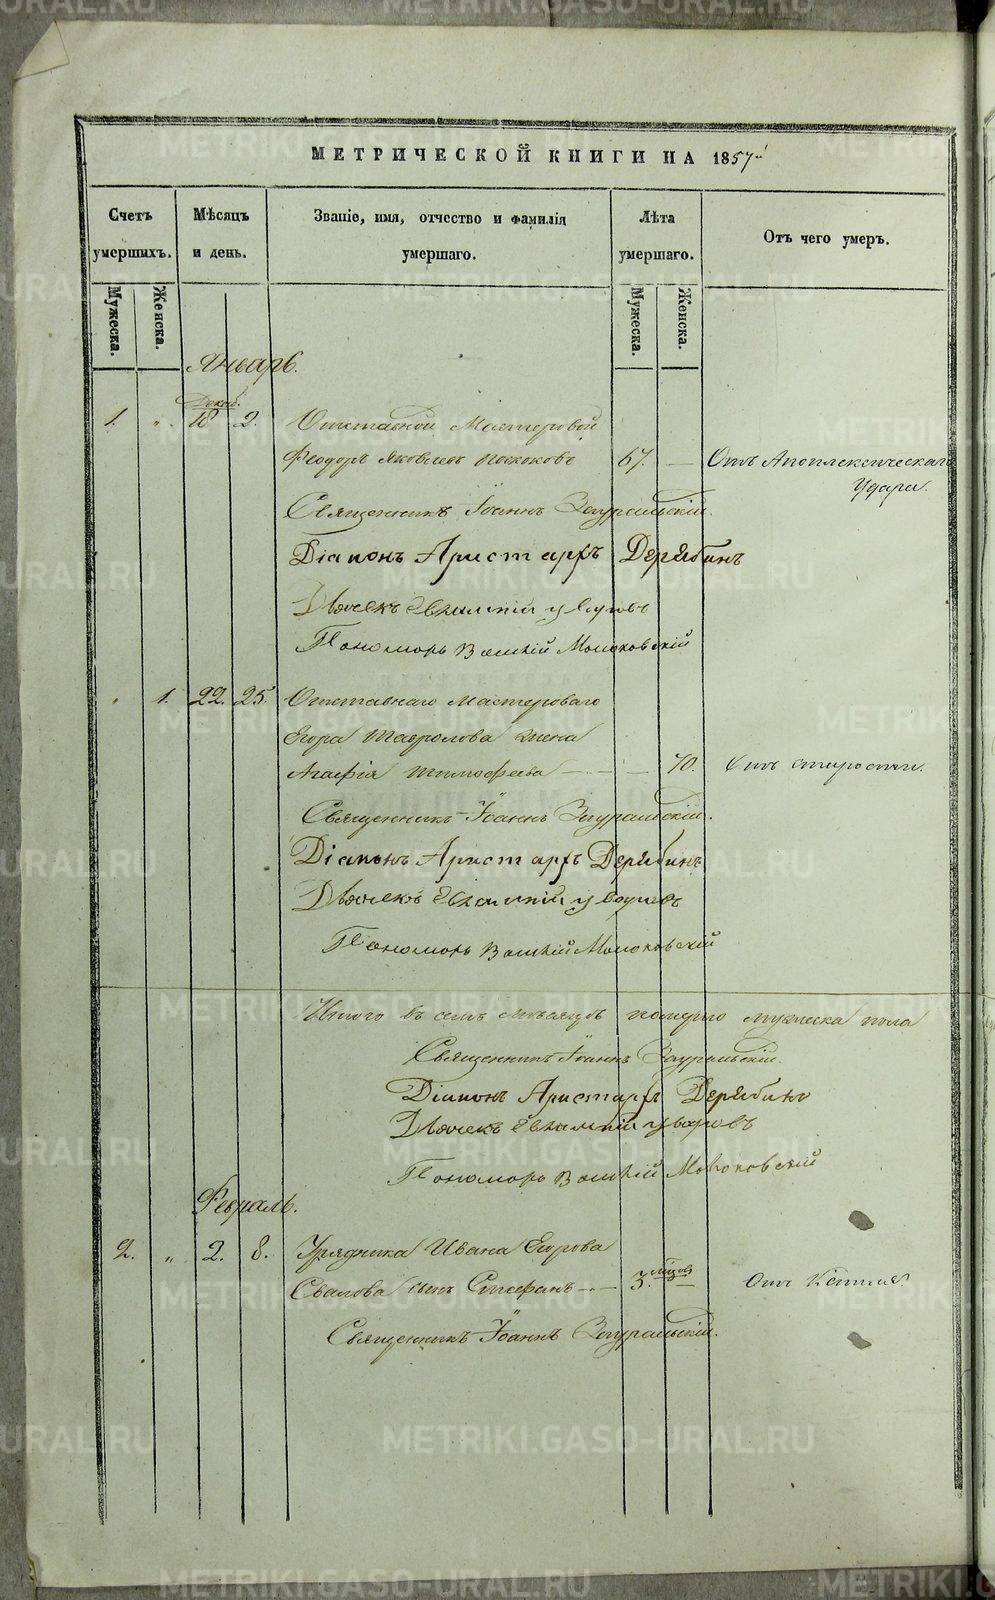 МЕТРИЧЕСКОЙ КНИГИ НА 1857й
Счетъ умершихъ.
Мѣсяцъ и день.
Званіе, имя, отчество и фамилія умершаго.
Лѣта умершаго.
Отъ чего умеръ.
Мужеска.
Женска.
Мужеска.
Женска.
Январь.
Декаб.
1. " 18 2. Отставной Мастеровой
Феодоръ Яковлевъ 67. — Отъ Апоплексическаго
Удара.
Священникъ Іоаннъ Зауральскій.
Діаконъ Аристархъ Дерябинъ
Дьячекъ Евѳимій Уваровъ
Пономарь Василій Молоковскій
" 1. 22. 25. Отставнаго Мастероваго
Егора жена
Агафія Тимофеева — 70. Отъ старости.
Священникъ Іоаннъ Зауральскій.
Діаконъ Аристархъ Дерябинъ
Дьячекъ Евѳимій Уваровъ
Пономарь Василій Молоковскій
Итого въ семъ мѣсяцѣ померло мужеска пола
Священникъ Іоаннъ Зауральскій.
Діаконъ Аристархъ Дерябинъ
Дьячекъ Евѳимій Уваровъ
Пономарь Василій Молоковскій
Февраль.
2. " 2. 8. Урядника Ивана Егорова
Свалова сынъ Стефанъ — 3. мѣсяц. — Отъ
Священникъ Іоаннъ Зауральскій.
METRIKI.GASO-URAL.RU